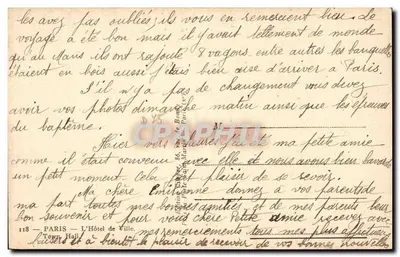 les avez pas oubliés, ils vous en remercient bien. Le
voyage a été bon mais il y avait tellement de monde
qu'au Mans ils ont rajouté 8 vagons entre autres les banquettes
étaient en bois aussi j'étais bien aise d'arriver à Paris.
S'il n'y a pas de changement vous devez
avoir vos photos dimanche matin ainsi que les épreuves
du baptême.
Hier vers heures ma petite amie
comme il était convenu avec elle et nous avons bien bavardé
un petit moment cela fait plaisir de se revoir.
Ma chère donnez à vos parents de
ma part toutes mes bonnes amitiés et de mes parents leur
bon souvenir et pour vous chère Petite amie recevez avec
mes remerciements tous mes plus affectueux
118 - PARIS - L'Hôtel de Ville.
Town Hall
baisers et à bientôt le plaisir de recevoir de vos bonnes nouvelles
CPARAMA